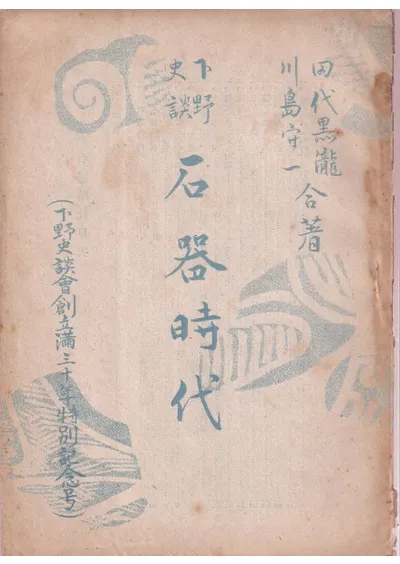 田代黒瀧
川島守一 合著
下野
史談
石器時代
(下野史談會創立滿三十年特別記念号)